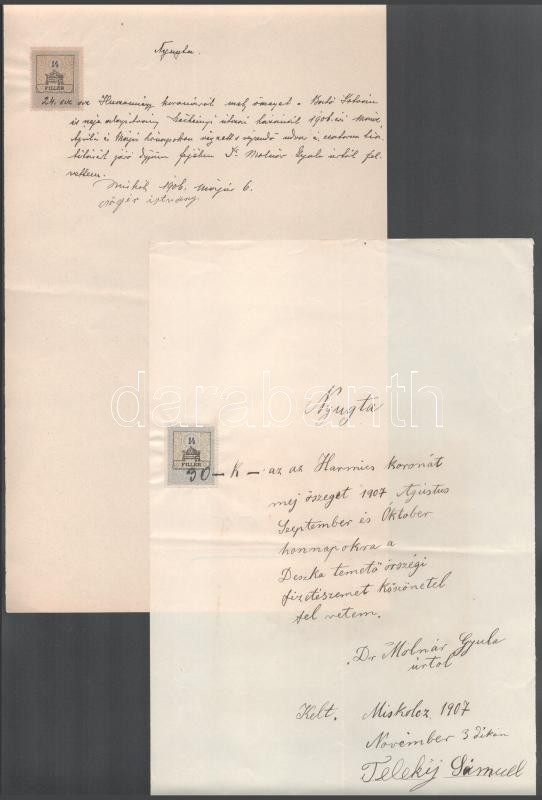 Nyugta.
14
FILLÉR
24. az az Huszonnégy koronáról mely összeget a Bartó István
és neje Széchenyi utcai házánál 1906. évi
Április és Május hónapokban végzett udvar és csatorna tisz-
títását járó díjam fejében Dr Molnár Gyula úrtól fel-
vettem.
Miskolcz 1906. Május 6.
István
darabanth
Nyugta
14
FILLÉR
30 – K – az az Harmics koronát
mej öszeget 1907 Ajustus
Szeptember és Október
honnapokra a
Deszka temető őrségi
fizetészemet köszönetel
fel vetem.
Dr Molnár Gyula
úrtol
Kelt. Miskolcz, 1907
November 3 dikán
Telekij Sámuel